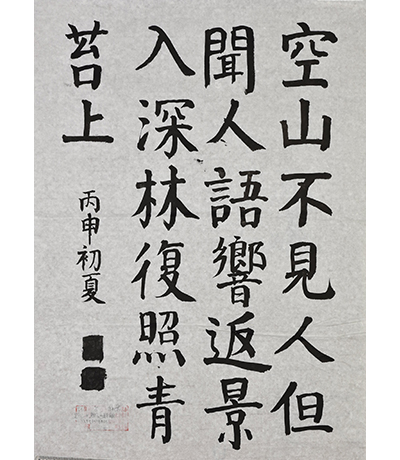 空山不見人但
聞人語響返景
入深林復照青
苔上
丙申初夏